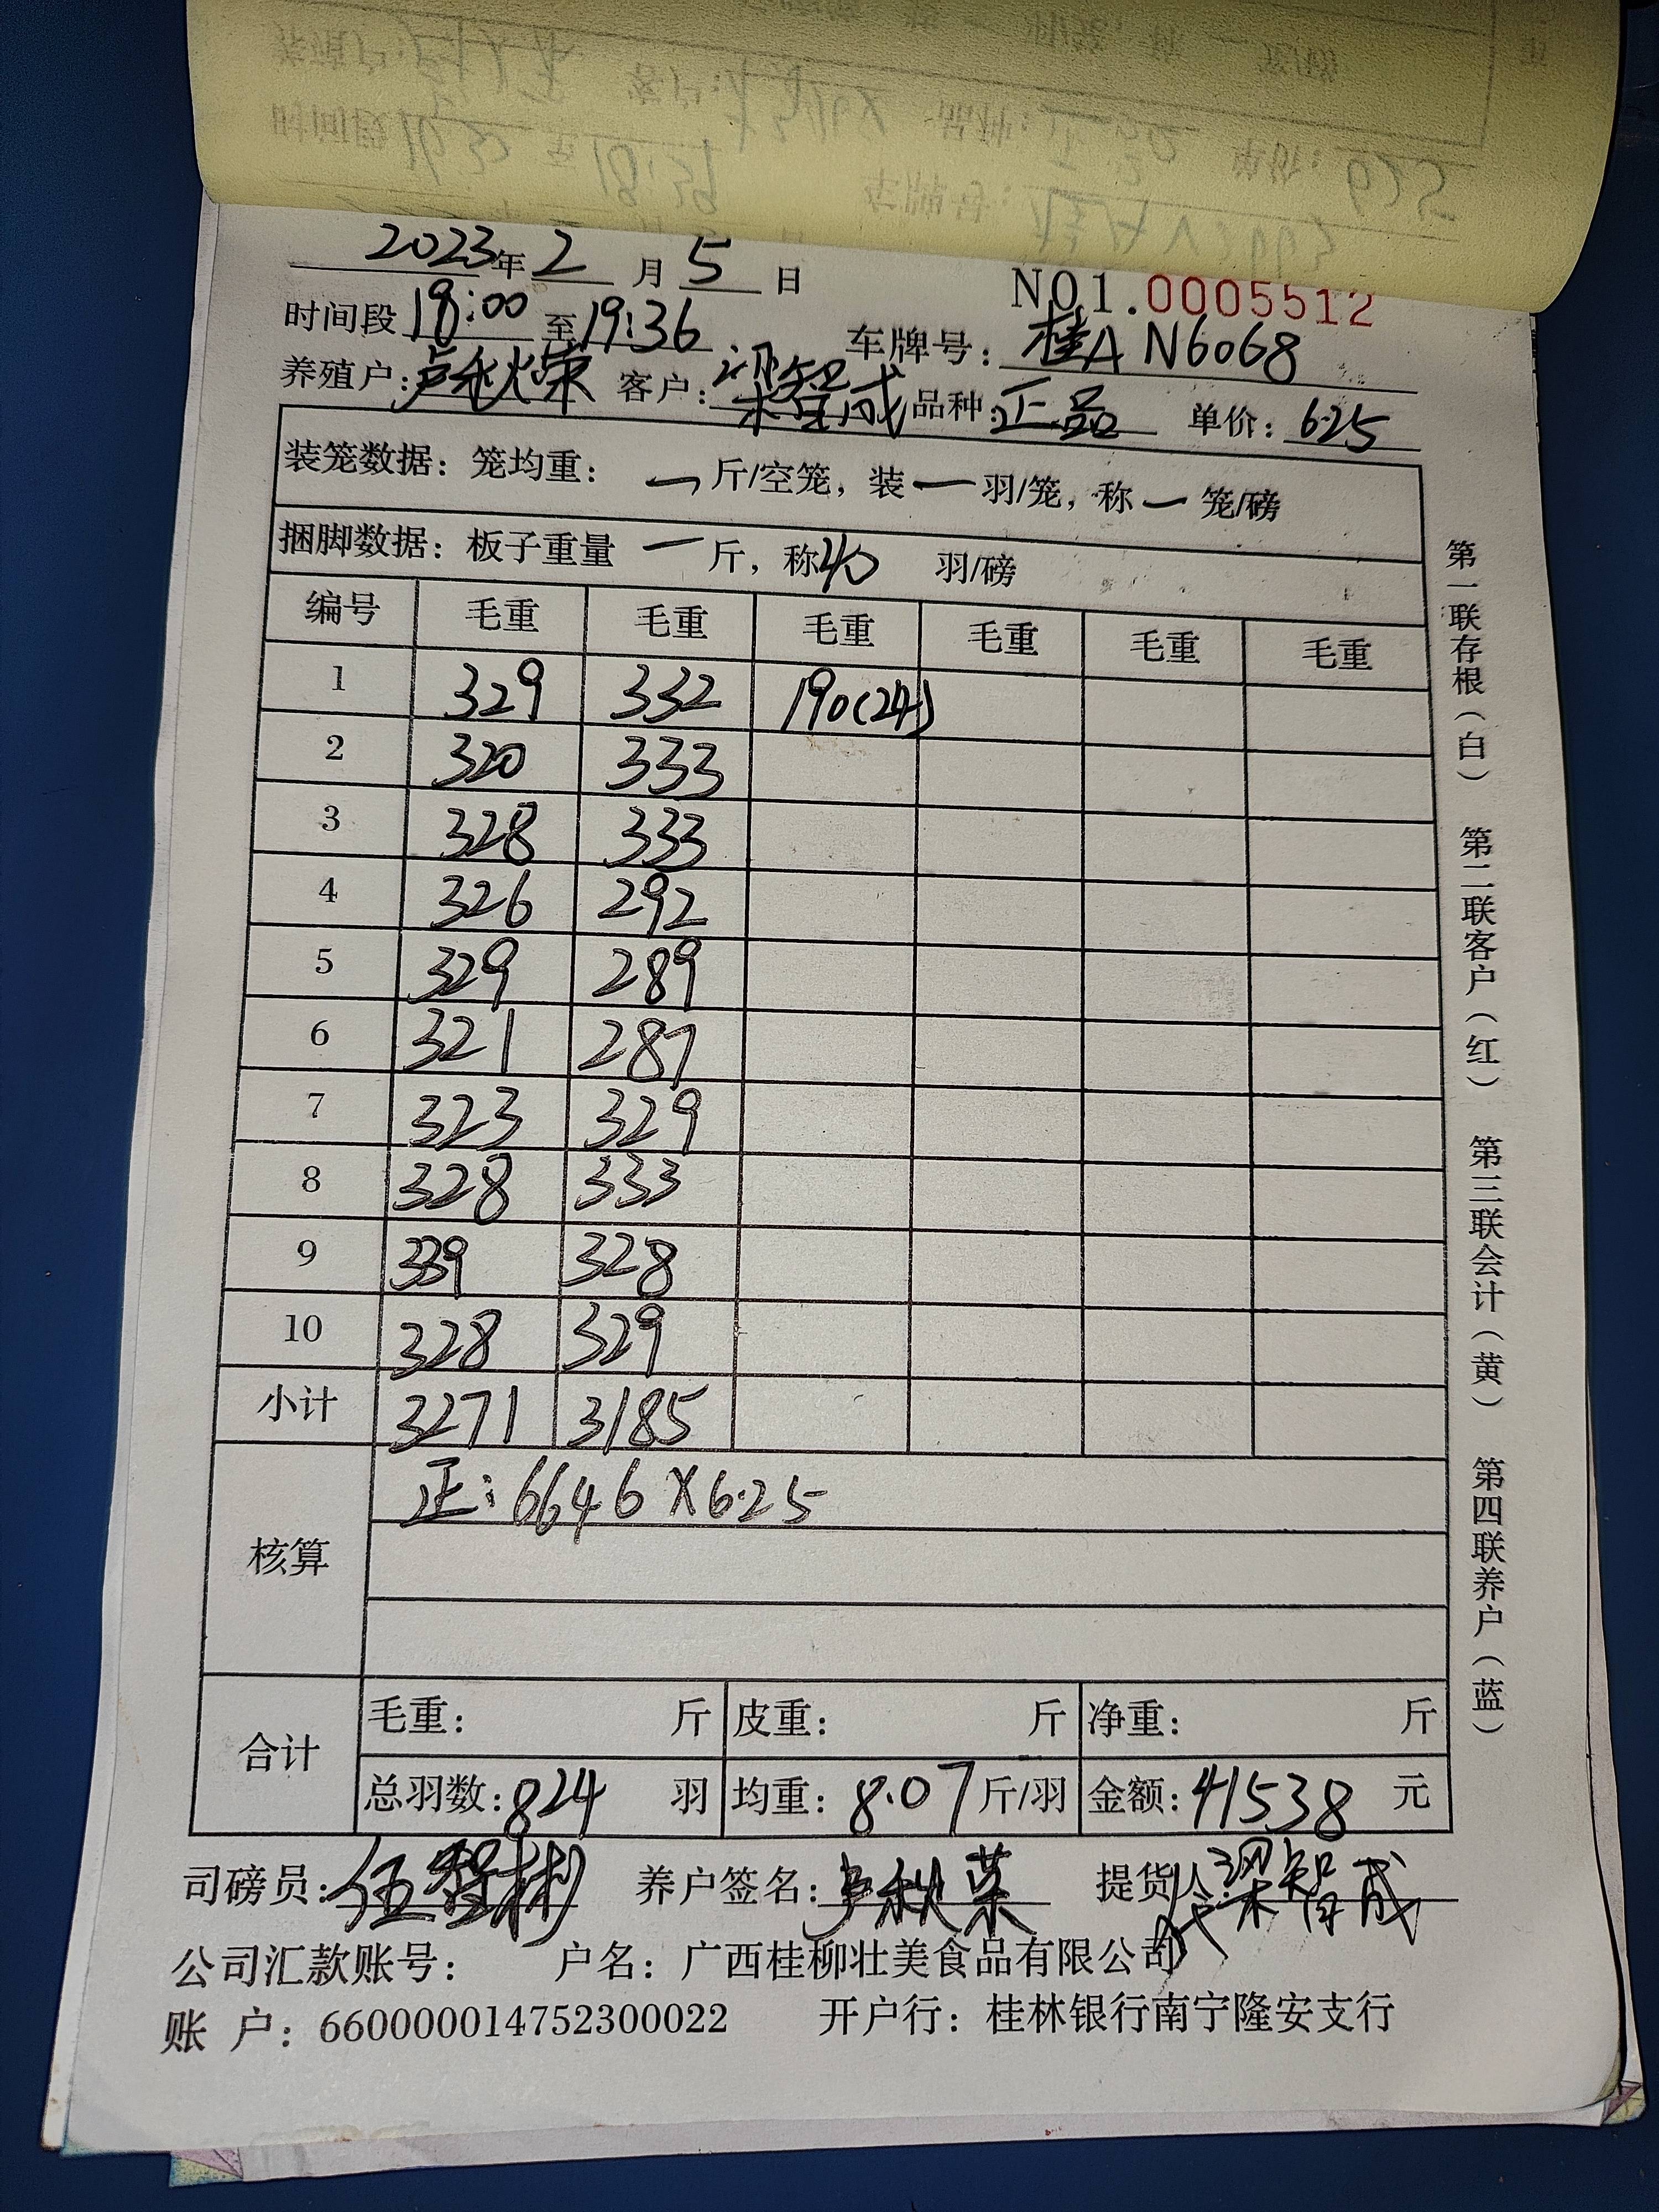 2023年2月5日 NO1.0005512
时间段18:00至19:36 车牌号：桂A N6068
养殖户：卢秋荣 客户：梁智成 品种：正品 单价：6.25
装笼数据：笼均重：一斤/空笼，装一羽/笼，称一笼/磅
捆脚数据：板子重量一斤，称40羽/磅
编号 毛重 毛重 毛重 毛重 毛重 毛重
1 329 332 190(24)
2 320 333
3 328 333
4 326 292
5 329 289
6 321 287
7 323 329
8 328 333
9 339 328
10 328 329
小计 3271 3185
核算 正：6646×6.25
合计 毛重： 斤 皮重： 斤 净重： 斤
总羽数：824羽 均重：8.07斤/羽 金额：41538元
司磅员：伍智彬 养户签名：卢秋荣 提货人：梁智成 代
公司汇款账号： 户名：广西桂柳壮美食品有限公司
账 户：660000014752300022 开户行：桂林银行南宁隆安支行
第一联存根（白） 第二联客户（红） 第三联会计（黄） 第四联养户（蓝）